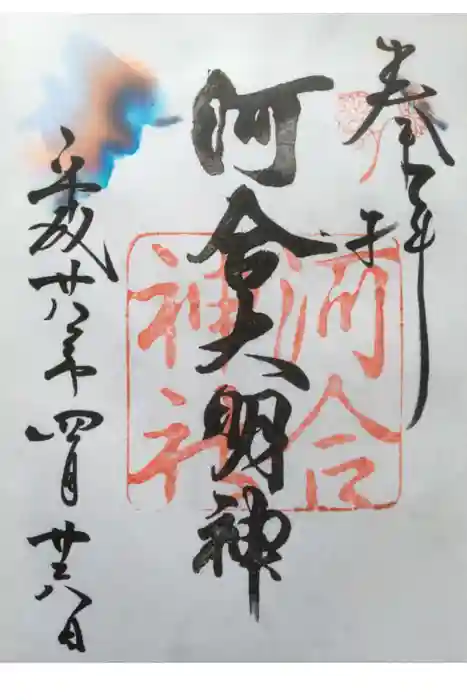 奉拝
河合大明神
河合
神社
平成廿八年四月廿八日